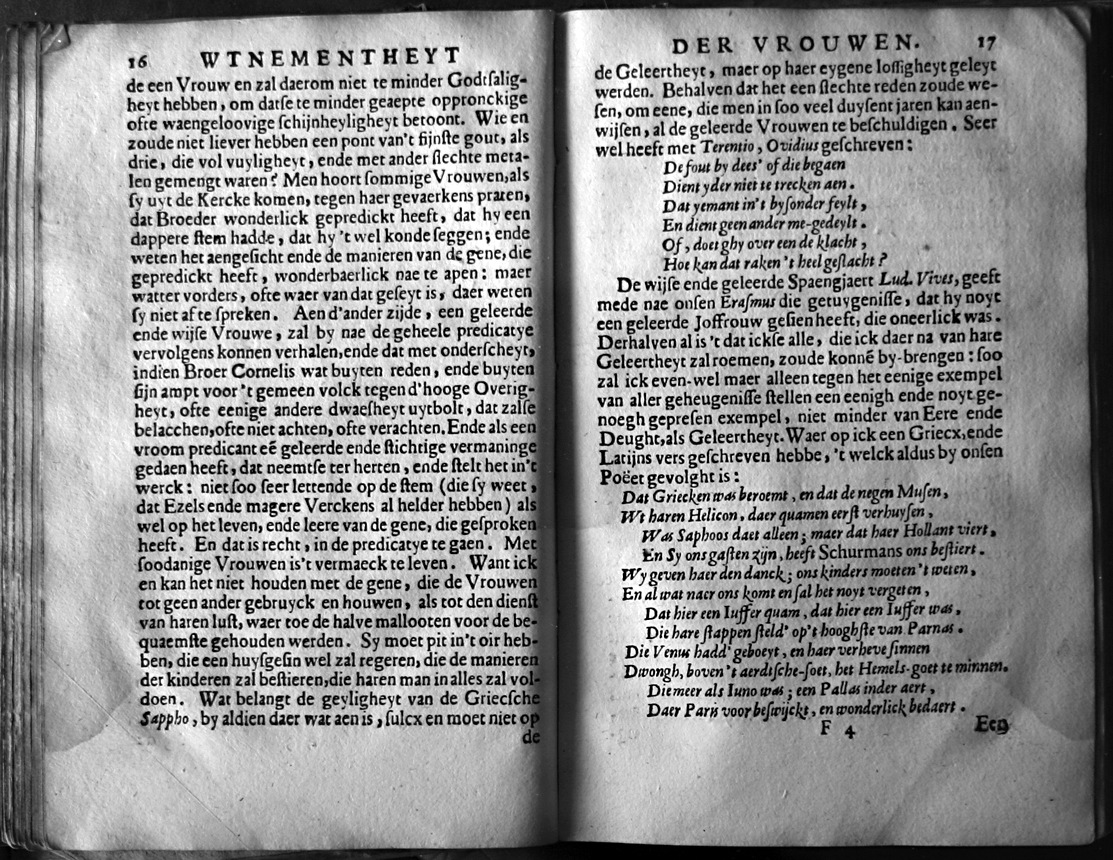 16 WTNEMENTHEYT
de een Vrouw en zal daerom niet te minder Godtſalig-
heyt hebben, om datſe te minder geaepte oppronckige
ofte waengeloovige ſchijnheyligheyt betoont. Wie en
zoude niet liever hebben een pont van't fijnſte gout, als
drie, die vol vuyligheyt, ende met ander ſlechte meta-
len gemengt waren? Men hoort ſommige Vrouwen, als
ſy uyt de Kercke komen, tegen haer gevaerkens praten,
dat Broeder wonderlick gepredickt heeft, dat hy een
dappere ſtem hadde, dat hy 't wel konde ſeggen; ende
weten het aengeſicht ende de manieren van de gene, die
gepredickt heeft, wonderbaerlick nae te apen: maer
watter vorders, ofte waer van dat geſeyt is, daer weten
ſy niet af te ſpreken. Aen d'ander zijde, een geleerde
ende wijſe Vrouwe, zal by nae de geheele predicatye
vervolgens konnen verhalen, ende dat met onderſcheyt,
indien Broer Cornelis wat buyten reden, ende buyten
ſijn ampt voor 't gemeen volck tegen d'hooge Overig-
heyt, ofte eenige andere dwaeſheyt uytbolt, dat zalſe
belacchen, ofte niet achten, ofte verachten. Ende als een
vroom predicant eẽ geleerde ende ſtichtige vermaninge
gedaen heeft, dat neemtſe ter herten, ende ſtelt het in't
werck: niet ſoo ſeer lettende op de ſtem (die ſy weet,
dat Ezels ende magere Verckens al helder hebben) als
wel op het leven, ende leere van de gene, die geſproken
heeft. En dat is recht, in de predicatye te gaen. Met
ſoodanige Vrouwen is't vermaeck te leven. Want ick
en kan het niet houden met de gene, die de Vrouwen
tot geen ander gebruyck en houwen, als tot den dienſt
van haren luſt, waer toe de halve mallooten voor de be-
quaemſte gehouden werden. Sy moet pit in't oir heb-
ben, die een huyſgeſin wel zal regeren, die de manieren
der kinderen zal beſtieren, die haren man in alles zal vol-
doen. Wat belangt de geyligheyt van de Griecſche
Sappho, by aldien daer wat aen is, ſulcx en moet niet op
de
DER VROUWEN. 17
de Geleertheyt, maer op haer eygene loſſigheyt geleyt
werden. Behalven dat het een ſlechte reden zoude we-
ſen, om eene, die men in ſoo veel duyſent jaren kan aen-
wijſen, al de geleerde Vrouwen te beſchuldigen. Seer
wel heeft met Terentio, Ovidius geſchreven:
De fout by dees' of die begaen
Dient yder niet te trecken aen.
Dat yemant in't byſonder feylt,
En dient geen ander me-gedeylt.
Of, doet ghy over een de klacht,
Hoe kan dat raken 't heel geſlacht?
De wijſe ende geleerde Spaengjaert Lud. Vives, geeft
mede nae onſen Eraſmus die getuygeniſſe, dat hy noyt
een geleerde Joffrouw geſien heeft, die oneerlick was.
Derhalven al is 't dat ickſe alle, die ick daer na van hare
Geleertheyt zal roemen, zoude konnẽ by-brengen: ſoo
zal ick even-wel maer alleen tegen het eenige exempel
van aller geheugeniſſe ſtellen een eenigh ende noyt ge-
noegh gepreſen exempel, niet minder van Eere ende
Deught, als Geleertheyt. Waer op ick een Griecx, ende
Latijns vers geſchreven hebbe, 't welck aldus by onſen
Poëet gevolght is:
Dat Griecken was beroemt, en dat de negen Muſen,
Wt haren Helicon, daer quamen eerſt verhuyſen,
Was Saphoos daet alleen; maer dat haer Hollant viert,
En Sy ons gaſten zijn, heeft Schurmans ons beſtiert.
Wy geven haer den danck; ons kinders moeten 't weten,
En al wat naer ons komt en ſal het noyt vergeten,
Dat hier een Iuffer quam, dat hier een Iuffer was,
Die hare ſtappen ſteld' op't hooghſte van Parnas.
Die Venus hadd' geboeyt, en haer verheve ſinnen
Dwongh, boven 't aerdtſche-ſoet, het Hemels-goet te minnen.
Die meer als Iuno was; een Pallas inder aert,
Daer Paris voor beſwijckt, en wonderlick bedaert.
F 4 Een